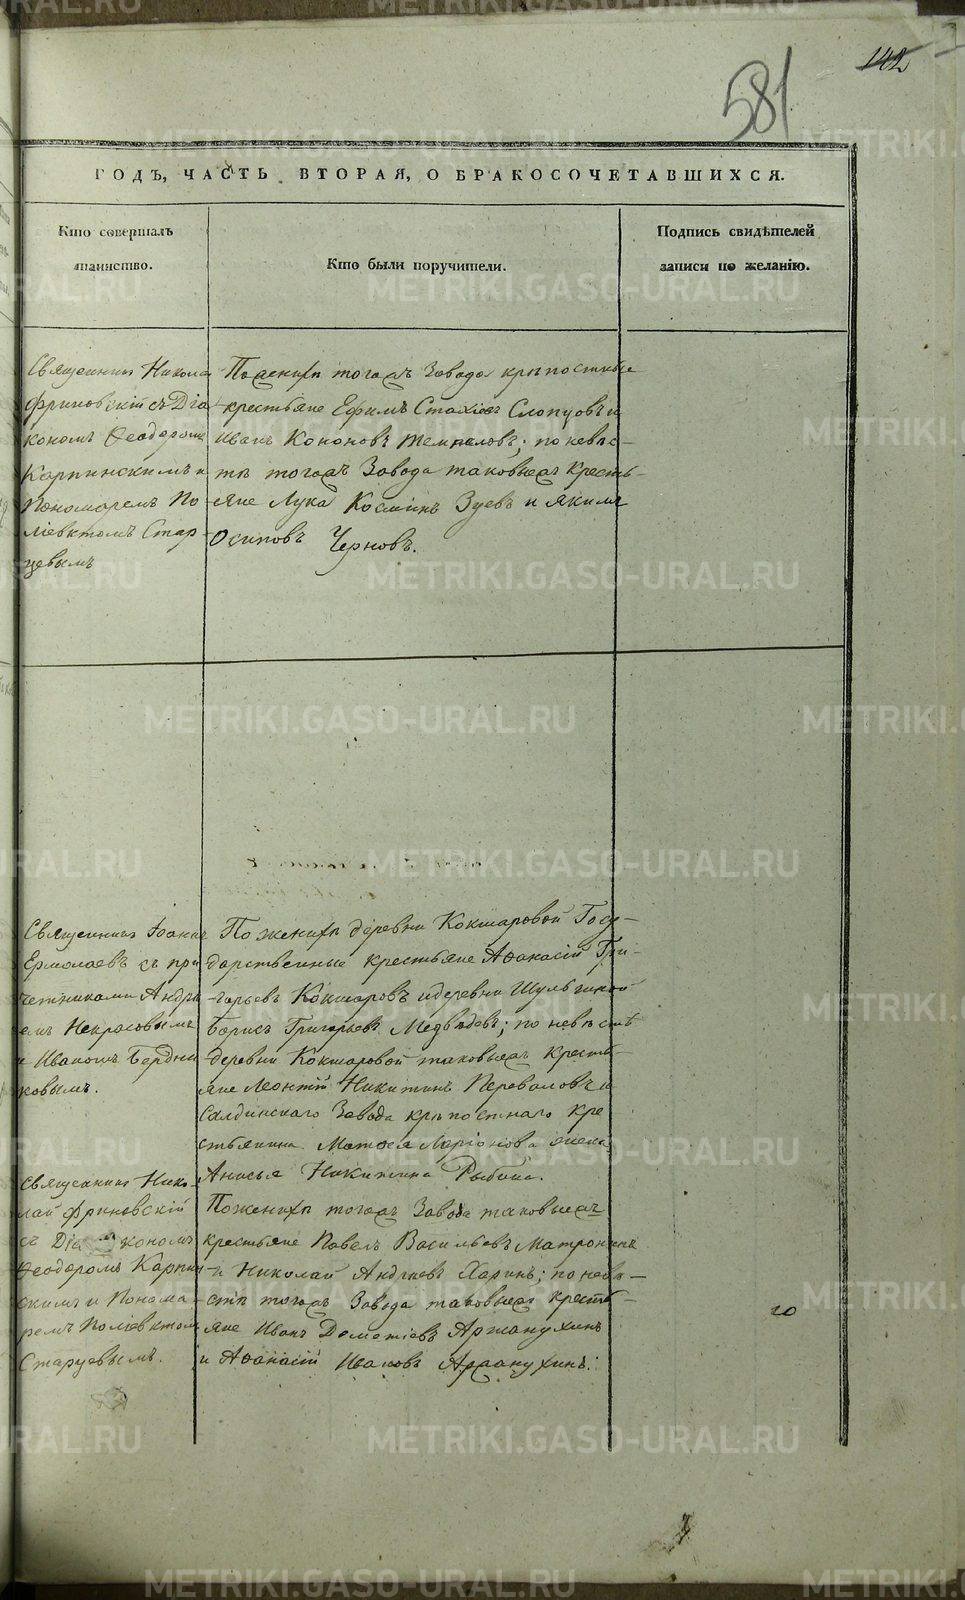 142
581
ГОДЪ, ЧАСТЬ ВТОРАЯ, О БРАКОСОЧЕТАВШИХСЯ.
Кто совершалъ
таинство.
Кто были поручители.
Подпись свидѣтелей
записи по желанію.
Священникъ Никола
Фриновскій съ Діа
кономъ Ѳеодоромъ
Карпинскимъ и
Пономаремъ По
ліевктомъ Стар
цевымъ
По женихѣ тогожъ Завода крѣпостные
крестьяне Ефимъ Стахіевъ Слопцовъ и
Иванъ Кононовъ; по невѣс-
тѣ тогожъ Завода таковыежъ кресть-
яне Лука Космінъ Зуевъ и Якимъ
Осиповъ Черновъ.
Священникъ Іоаннъ
Ермолаевъ съ при
четниками Андре
емъ Некрасовымъ
и Иваномъ Бердни
ковымъ.
По женихѣ деревни Кокшаровой Госу-
дарственные крестьяне Аѳанасій Гри-
горьевъ Кокшаровъ и деревни Шульгиной
Борисъ Григорьевъ Медвѣдевъ; по невѣстѣ
деревни Кокшаровой таковыежъ кресть-
яне Леонтій Никитинъ Переваловъ и
Салдинскаго Завода крѣпостнаго кре-
стьянина Матѳея Ларіонова жена
Анисья Никитина
Священникъ Нико-
лай Фриновскій
съ Діакономъ
Ѳеодоромъ Карпин-
скимъ и Понома-
ремъ Поліевктомъ
Старцевымъ.
По женихѣ тогожъ Завода таковыежъ
крестьяне Павелъ Васильевъ Матронинъ
и Николай Андреевъ Харинъ; по невѣ-
стѣ тогожъ Завода таковыежъ кресть-
яне Иванъ Дементіевъ Аржанухинъ
и Аѳанасій Ивановъ Аржанухинъ.
METRIKI.GASO-URAL.RU